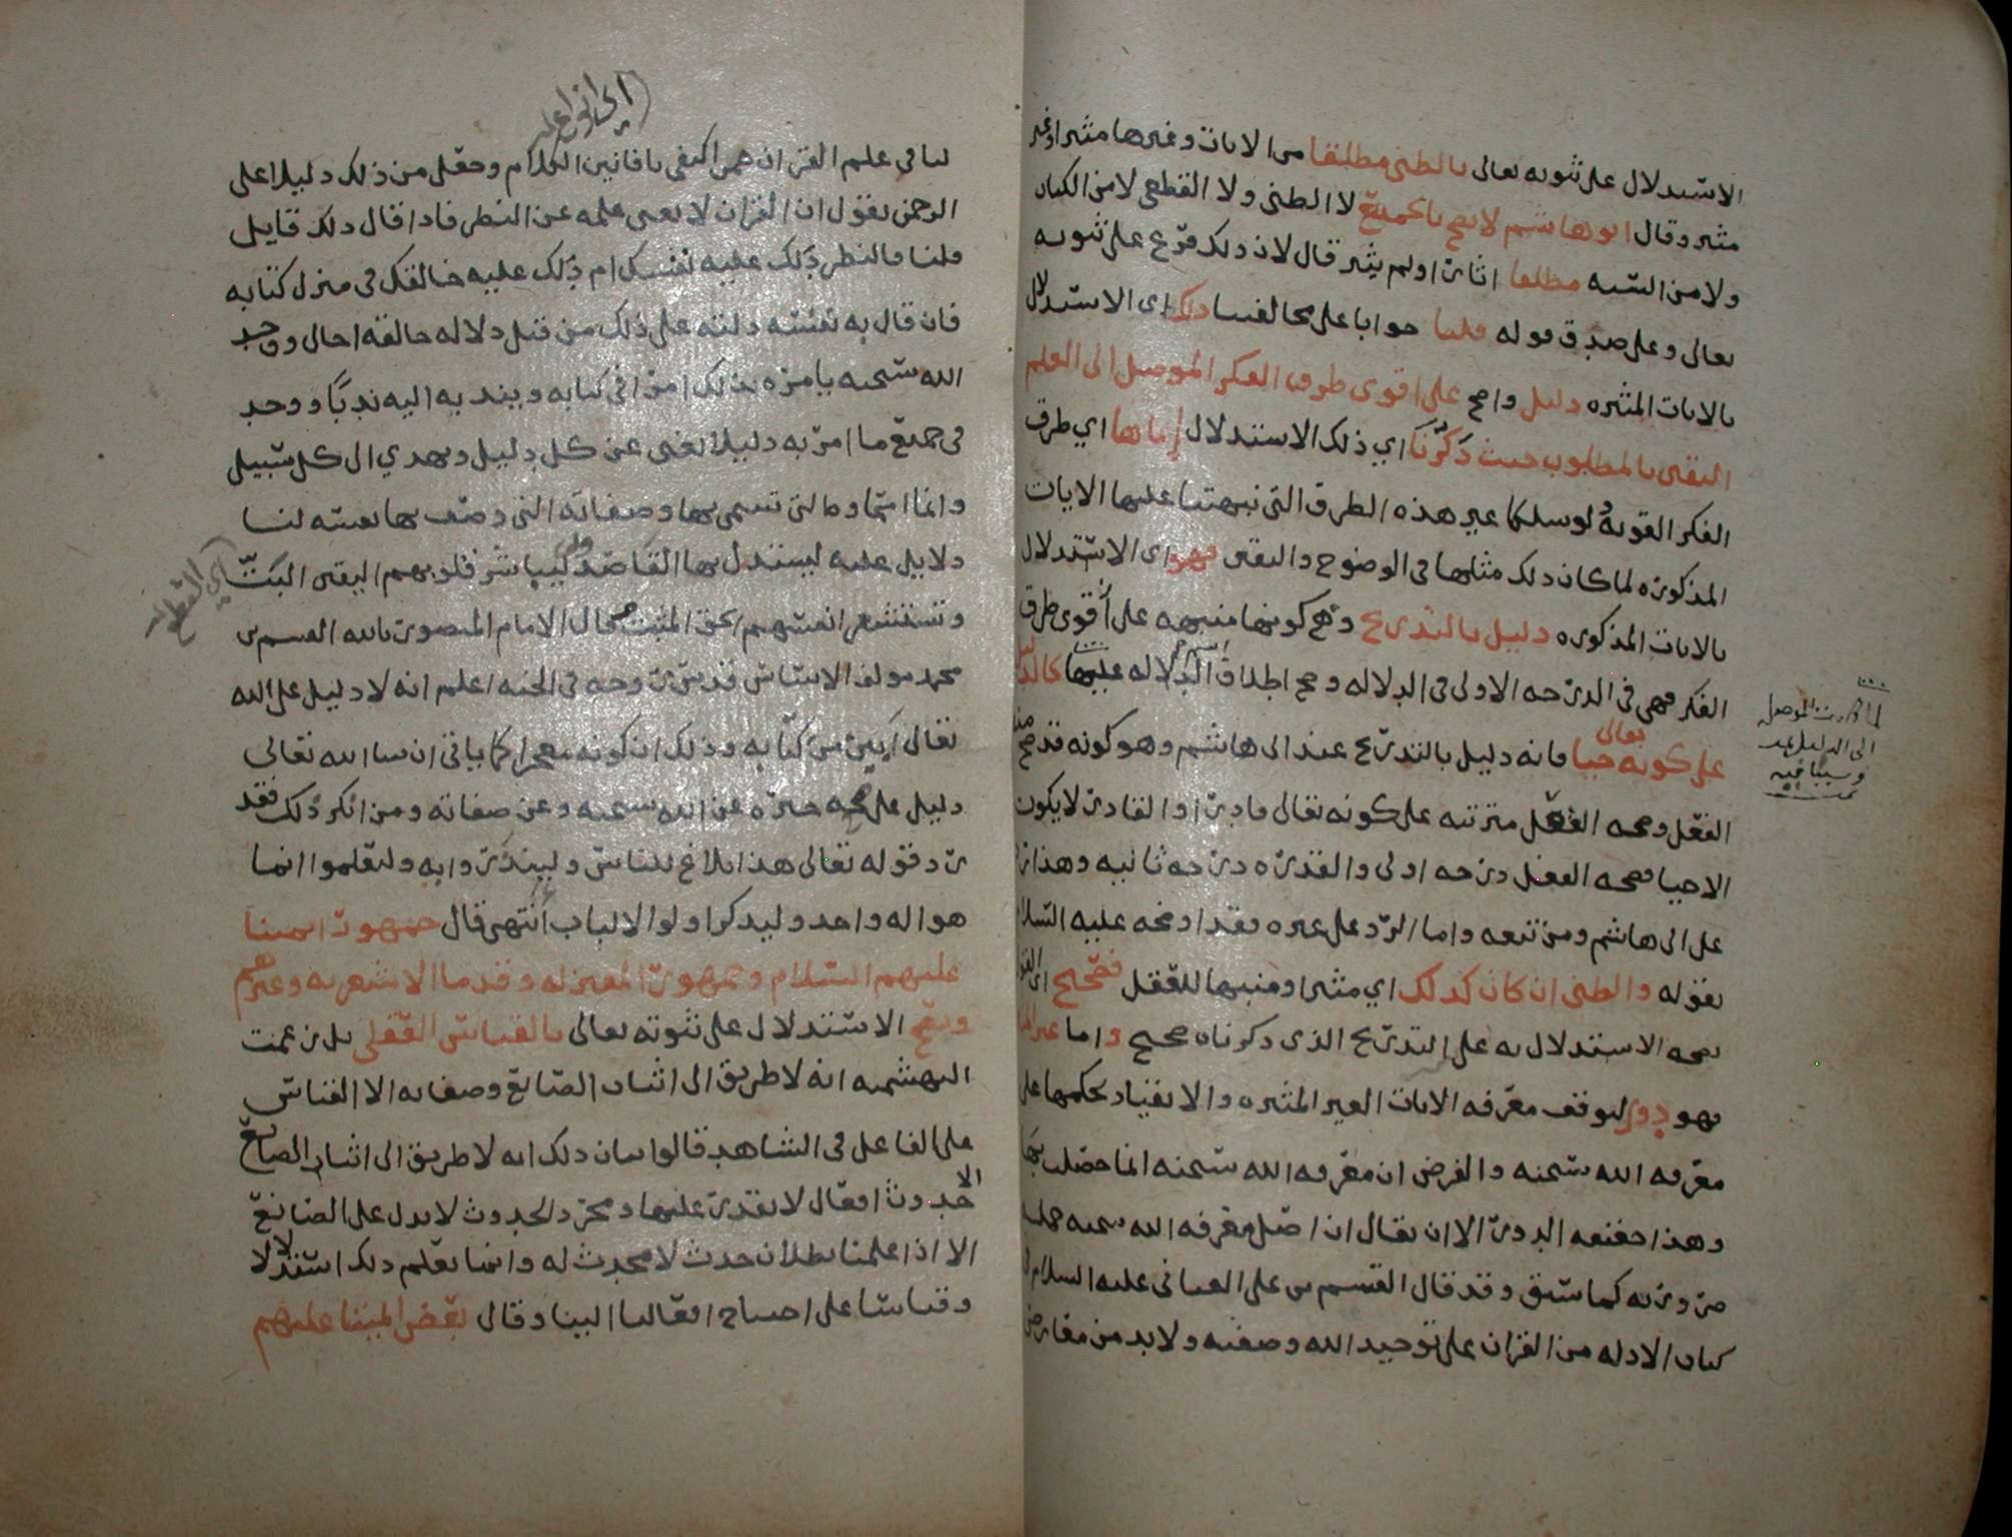 الاستدلال على ثبوته تعالى بالظني مطلقا من الايات وغيرها مثيرا وغير
مثير وقال ابو هاشم لا يصح بالجميع لا الظني ولا القطعي لا من الكتاب
ولا من السنه مطلقا اثار او لم يثر قال لان ذلك فرع على ثبوته
تعالى وعلى صدق قوله قلنا جوابا على مخالفينا ذلك اى الاستدلال
بالايات المثيره دليل واضح على اقوى طرق الفكر الموصل الى العلم
اليقين بالمطلوب حيث ذكرنا اي ذلك الاستدلال اياها اي طرق
الفكر القويه ولو سلكنا غير هذه الطرق التى نبهتنا عليها الايات
المذكوره لما كان ذلك مثلها فى الوضوح واليقين فهو اى الاستدلال
بالايات المذكوره دليل بالتدريج وهي كونها منبهه على أقوى طرق
الفكر فهي فى الدرجه الاولى فى الدلاله وصح اطلاق الدلاله عليها كالدليل
على كونه تعالى حيا فانه دليل بالتدريج عند ابى هاشم وهو كونه قد صح منه
الفعل وصحه الفعل مترتبه على كونه تعالى قادرا والقادر لا يكون
الا حيا فصحه الفعل درجه اولى والقدره درجه ثانيه وهذا رد
على ابى هاشم ومن تبعه واما الرد على غيره فقد اوضحه عليه السلام
بقوله والظنى ان كان كذلك اي مثيرا ومنبها للعقل فصحيح اى القول
بصحه الاستدلال به على التدريج الذى ذكرناه صحيح واما غير المثير
فهو دور لتوقف معرفه الايات الغير المثيره والانقياد لحكمها على
معرفه الله سبحنه والفرض ان معرفه الله سبحنه انما حصلت بها
وهذا حقيقه الدور الا ان يقال ان اصل معرفه الله سبحنه جمله
ضروريه كما سبق وقد قال القسم بن على العيانى عليه السلام فى
كتاب الادله من القران على توحيد الله وصفته ولا بد من معارض
لما كانت الموصله
الى الدليل
لنا فى علم القران ممن اكتفى بافانين الكلام وجعل من ذلك دليلا على
اي انواع علم
الرحمن بقول ان القران لا يغنى علمه عن النظر فاذا قال ذلك قايل
قلنا فالنظر دلك عليه نفسك ام دلك عليه خالقك فى منزل كتابه
فان قال به نفسه دلته على ذلك من قبل دلاله خالقه احال ووجد
الله سبحنه يامره بذلك امرا فى كتابه ويندبه اليه ندبا ووجد
فى جميع ما امر به دليلا يغنى عن كل دليل ويهدي الى كل سبيل
وانما اسماوه التى تسمى بها وصفاته التى وصف بها نفسه لنا
دلايل عليه ليستدل بها القاصد وليباشر قلوبهم اليقين البتّ
اي القطع
وتستشعر انفسهم الحق المثبت وقال الامام المنصور بالله القسم بن
محمد مولف الاساس قدس روحه فى الجنه اعلم انه لا دليل على الله
تعالى ابين من كتابه وذلك ان كونه معجزا كما ياتى ان شا الله تعالى
دليل على صحه خبره عن الله سبحنه وعن صفاته ومن انكر ذلك فقد
رد قوله تعالى هذا بلاغ للناس ولينذروا به وليعلموا انما
هو اله واحد وليذكر اولوا الالباب انتهى قال جمهور ايمتنا
عليهم السلام وجمهور المعتزله وقدما الاشعريه وغيرهم
ويصح الاستدلال على ثبوته تعالى بالقياس العقلي بل زعمت
البهشميه انه لا طريق الى اثبات الصانع وصفاته الا القياس
على الفاعل فى الشاهد قالوا بيان ذلك انه لا طريق الى اثبات الصانع
الا حدوث افعال لا نقدر عليها ومجرد الحدوث لا يدل على الصانع
الا اذا علمنا بطلان حدث لا محدث له وانما نعلم ذلك استدلالا
وقياسا على احتياج افعالنا الينا وقال بعض ايمتنا عليهم